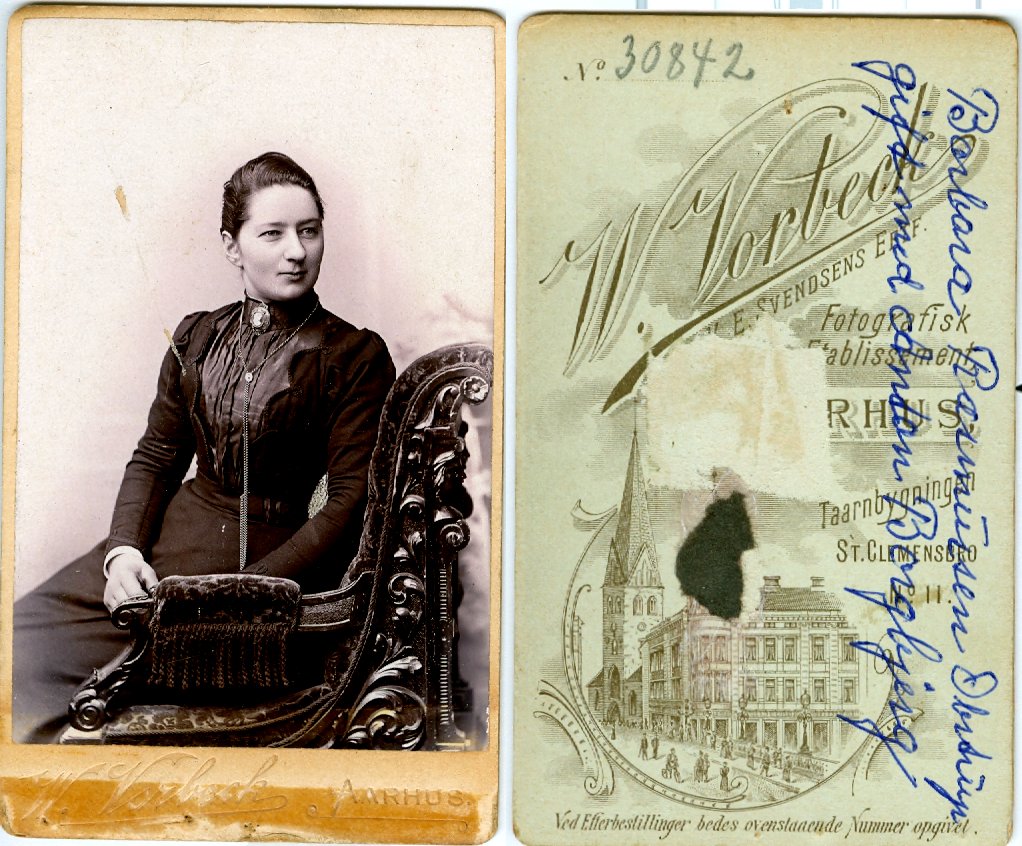 W. Vorbeck AARHUS.
No. 30842
W. Vorbeck
E. SVENDSENS EFTF.
Fotografisk
Etablissement
RHUS.
Taarnbygningen
ST. CLEMENSBRO
No 11.
Ved Efterbestillinger bedes ovenstaaende Nummer opgivet.
Barbara Rasmussen Obdrup
gift med Anton Borgbjerg